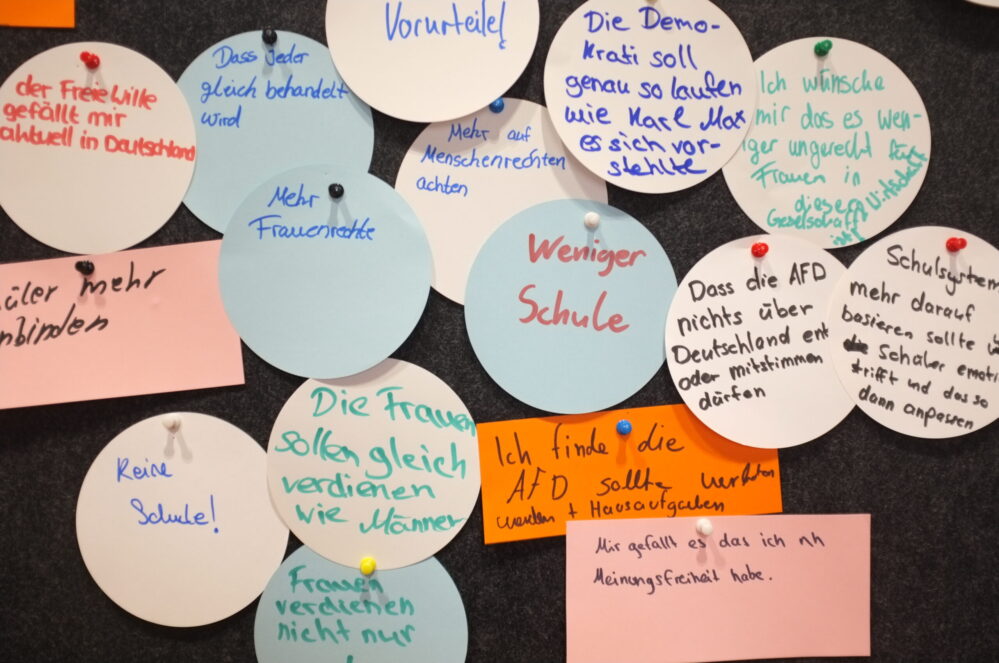 Vorurteile!
Die Demo-
krati soll
genau so laufen
wie Karl Max
es sich vor-
stehlte
Dass jeder
gleich behandelt
wird
der Freie Wille
gefällt mir
aktuell in Deutschland
Ich wünsche
mir das es wen-
iger ungerecht für
Frauen in
diesem Wirtschaft
Gesellschaft
ist
Mehr auf
Menschenrechten
achten
Mehr
Frauenrechte
Weniger
Schule
Dass die AFD
nichts über
Deutschland ent
oder mitstimmen
dürfen
Schulsystem
mehr darauf
basieren sollte
die Schüler emoti
trifft und das so
dann anpassen
üler mehr
nbinden
Die Frauen
sollen gleich
verdienen
wie Männer
Ich finde die
AFD sollte verboten
werden + Hausaufgaben
Keine
Schule!
Mir gefällt es das ich nh
Meinungsfreiheit habe.
Frauen
verdienen
nicht nur